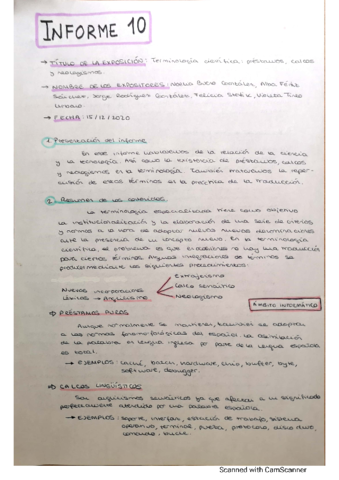 INFORME 10
→ TÍTULO DE LA EXPOSICIÓN: Terminología científica: préstamos, calcos
y neologismos.
→ NOMBRE DE LOS EXPOSITORES: Noelia Bueno González, Ana
Sánchez, Jorge Rodríguez González,
→ FECHA: 15/12/2020
1. Presentación del informe
En este informe hablaremos de la relación de la ciencia
y la tecnología. Así como la existencia de préstamos, calcos
y neologismos en la terminología. También trataremos la reper-
cusión de estos términos en la práctica de la traducción.
2. Resumen de los contenidos
La terminología especializada tiene como objetivo
la institucionalización y la elaboración de una serie de criterios
y normas a la hora de adoptar nuevas denominaciones
ante la presencia de un concepto nuevo. En la terminología
científica el problema es que en ocasiones no hay una traducción
para ciertos términos. Algunas integraciones de términos se
producen mediante los siguientes procedimientos:
Extranjerismo
Nuevas incorporaciones
Calco semántico
léxicas → Anglicismo
Neologismo
ÁMBITO INFORMÁTICO
a) PRÉSTAMOS PUROS
Aunque normalmente se mantienen, también se adaptan
a las normas fonomorfológicas del español. La asimilación
de la palabra en lengua inglesa por parte de la lengua española
es total.
→ EJEMPLOS: caché, batch, hardware, chip, buffer, byte,
software, debugger.
b) CALCOS LINGÜÍSTICOS
Son anglicismos semánticos ya que ofrecen a un significado
perfectamente atendido por una palabra española.
→ EJEMPLOS: soporte, interfaz, estación de trabajo, sistema
operativo, terminal, puerta, protocolo, disco duro,
comando, bucle.
Scanned with CamScanner